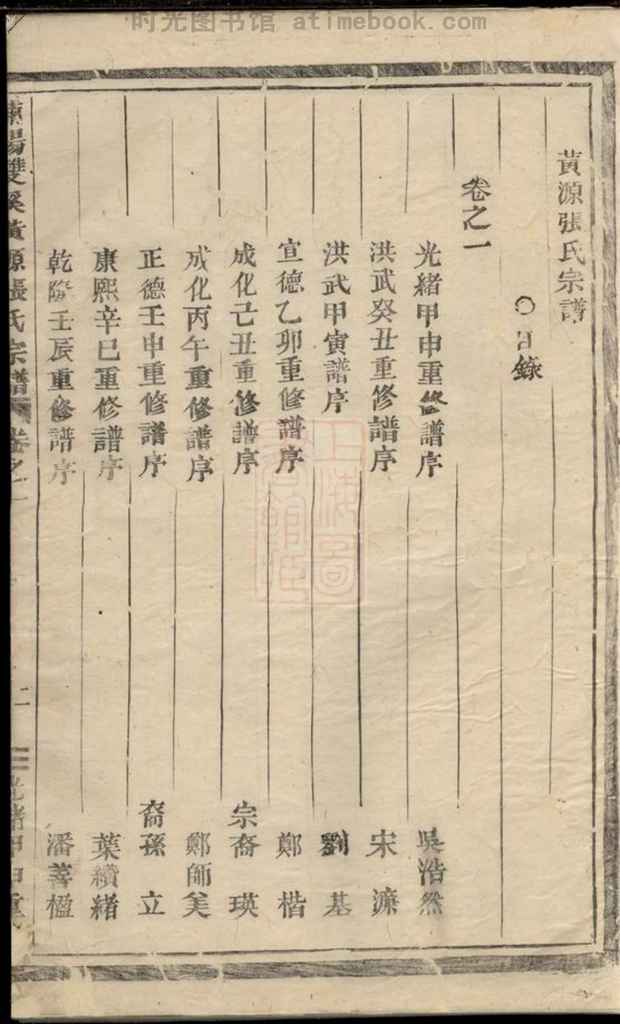 时光图书馆 atimebook.com
黃源張氏宗譜
○目錄
卷之一
光緒甲申重修譜序 吳浩然
洪武癸丑重修譜序 宋濂
洪武甲寅譜序 劉基
宣德乙卯重修譜序 鄭楷
成化己丑重修譜序 宗裔瑛
成化丙午重修譜序 鄭師
正德壬申重修譜序 裔孫立
康熙辛巳重修譜序 葉纘緒
乾隆壬辰重修譜序 潘善楹
陽雙溪黃源張氏宗譜 卷之一 光緒甲申重